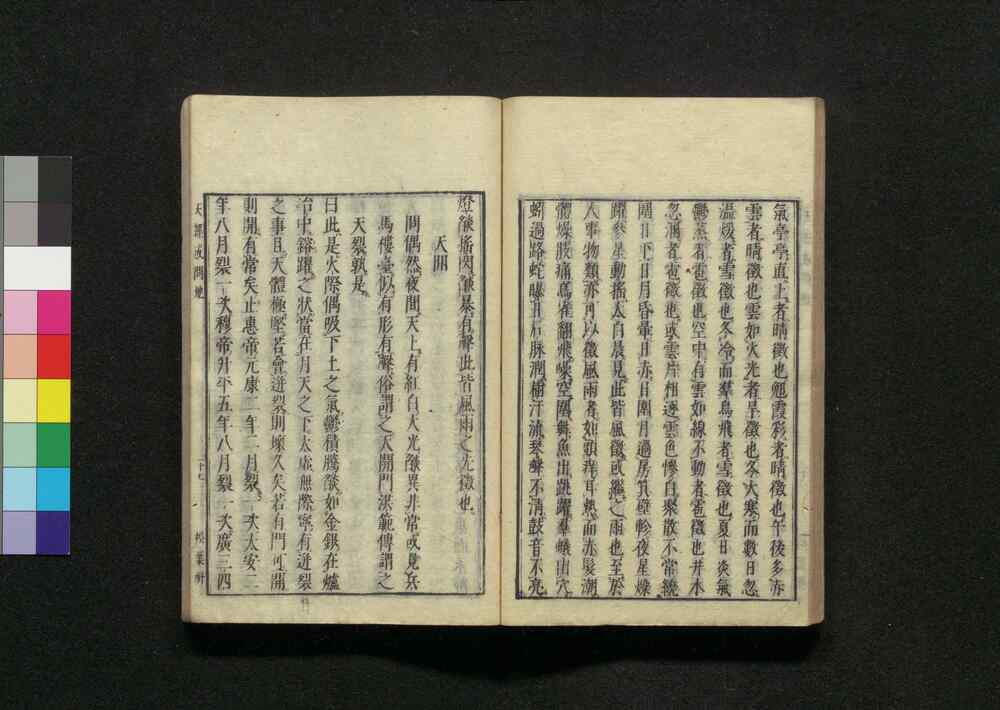 氣亭亭直上者晴徵也魍霞彩者晴徵也午後多赤
雲者晴徵也雲如火光者旱徵也冬大寒而數日忽
溫煖者雪徵也冬冷而羣鳥飛者雪徵也夏日炎氣
鬱蒸者雹徵也空中有雲如線不動者雹徵也井水
忽濁者雹徵也或雲片相逐雲色慘白聚散不常繞
圍日下日月昏暈日赤日圍月過房箕璧軫夜星燥
躍參星動搖太白晨見此皆風徵或繼之雨也至於
人事物類亦可以徵風雨者如頭痒耳熱面赤髮潮
體燥股痛鳥雀翻飛噪空圍繞魚出跳躍羣蟻出穴
蚓過路蛇曝日石脉潤檐汗流琴聲不清鼓音不亮
燈燄搖閃燄暴有聲此皆風雨之先徵也
天開
問偶然夜間天上有紅白大光燄異非常或見兵
馬樓臺似有形有聲俗謂之天開門洪範傳謂之
天裂孰是
曰此是火際偶吸下土之氣鬱積騰燄如金銀在爐
冶中鎔躍之狀當在月天之下太虛無際寧有迸裂
之事且天體極堅若會迸裂則壞久矣若有門可開
則開有常矣止惠帝元康二年二月裂一次太安二
年八月裂一次穆帝升平五年八月裂一次廣三四
天課或問 二十七 松葉軒